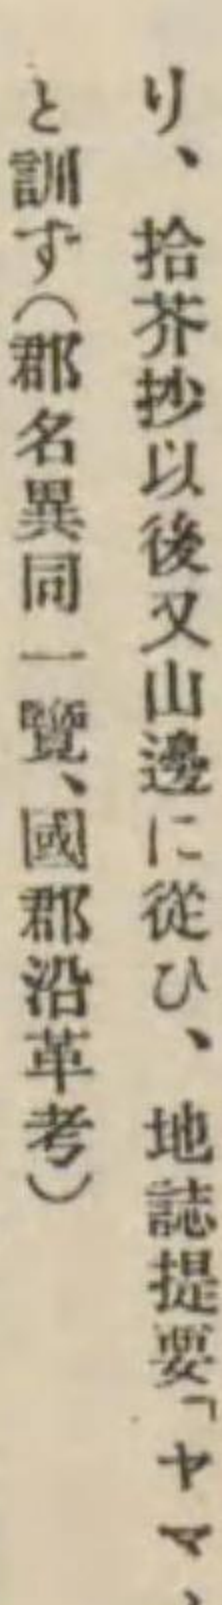 り、拾芥抄以後又山邊に從ひ、地誌提要「ヤマ
と訓ず（郡名異同一覽、國郡沿革考）